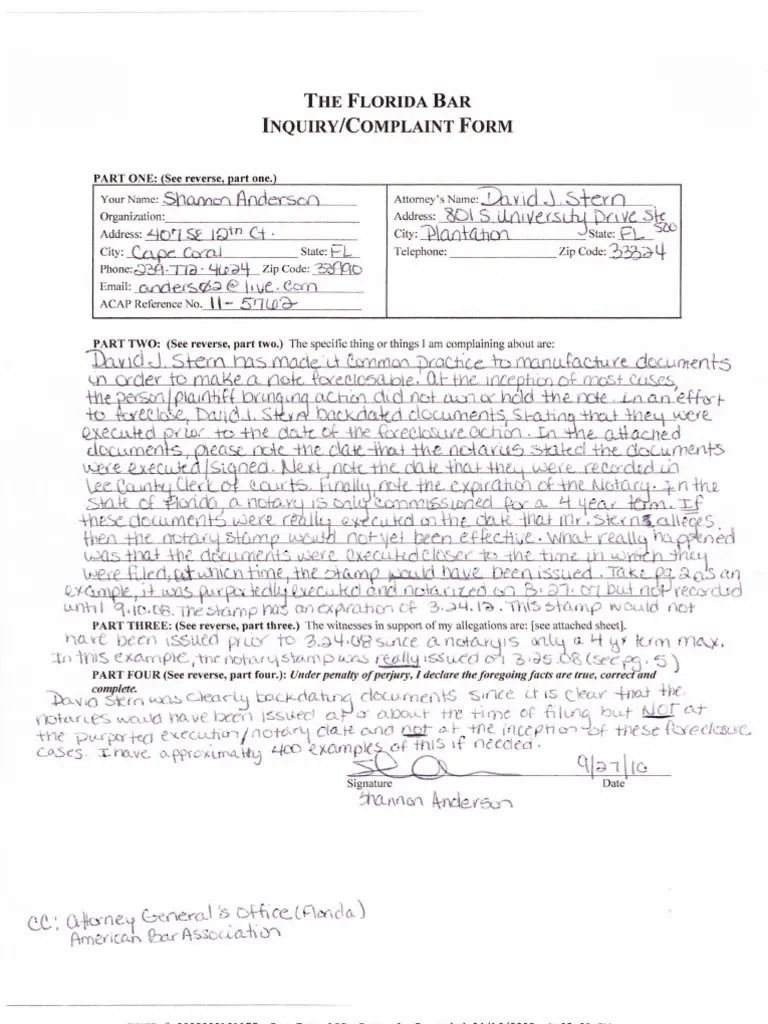 THE FLORIDA BAR
INQUIRY/COMPLAINT FORM
PART ONE: (See reverse, part one.)
Your Name: Shannon Anderson
Organization:
Address: 407 SE 12th Ct.
City: Cape Coral State: FL
Phone: 239-772-4624 Zip Code: 33990
Email: anders02@live.com
ACAP Reference No. 11-5762
Attorney's Name: David J. Stern
Address: 801 S. University Drive Ste 500
City: Plantation State: FL
Telephone: Zip Code: 33324
PART TWO: (See reverse, part two.) The specific thing or things I am complaining about are:
David J. Stern has made it common practice to manufacture documents
in order to make a note foreclosable. At the inception of most cases,
the person/plaintiff bringing action did not own or hold the note. In an effort
to foreclose, David J. Stern backdated documents, stating that they were
executed prior to the date of the foreclosure action. In the attached
documents, please note the date that the notarius stated the documents
were executed/signed. Next, note the date that they were recorded in
Lee County Clerk of Courts. Finally, note the expiration of the Notary. In the
State of Florida, a notary is only commissioned for a 4 year term. If
these documents were really executed on the date that Mr. Stern alleges,
then the notary stamp would not yet been effective. What really happened
was that the documents were executed closer to the time in which they
were filed, at which time, the stamp would have been issued. Take pg 2 as an
example, it was purportedly executed and notarized on 8.27.07 but not recorded
until 9.10.08. The stamp has an expiration of 3.24.12. This stamp would not
PART THREE: (See reverse, part three.) The witnesses in support of my allegations are: [see attached sheet].
have been issued prior to 3.24.08 since a notary is only a 4 yr term max.
In this example, the notary stamp was really issued on 3.25.08 (see pg. 5)
PART FOUR (See reverse, part four.): Under penalty of perjury, I declare the foregoing facts are true, correct and
complete.
David Stern was clearly backdating documents since it is clear that the
notaries would have been issued at or about the time of filing but NOT at
the purported execution/notary date and not at the inception of these foreclosure
cases. I have approximatly 400 examples of this if needed.
9/27/10
Signature Date
Shannon Anderson
CC: Attorney General's Office (Florida)
American Bar Association